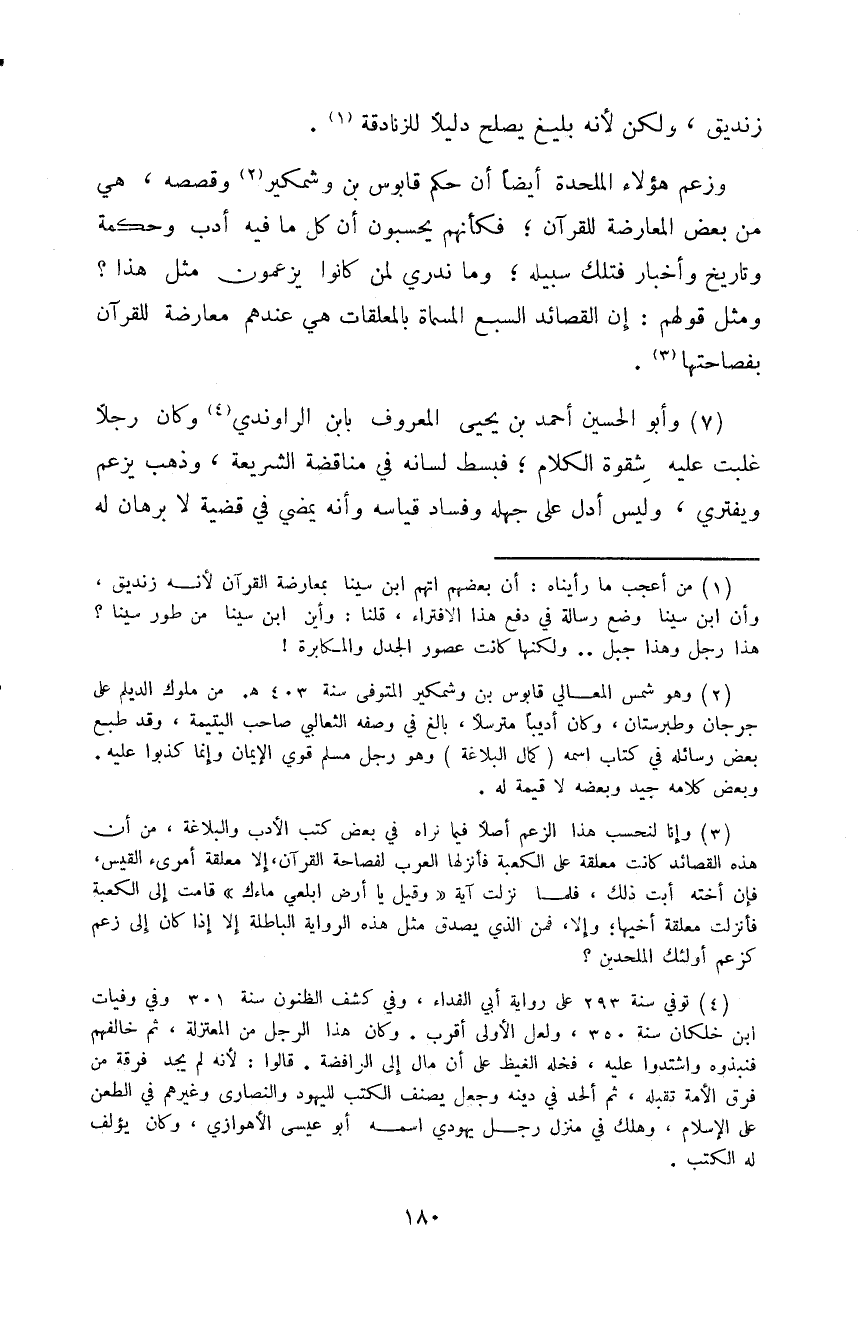 زنديق ، ولكن لأنه بليغ يصلح دليلاً للزنادقة (١) .
وزعم هؤلاء الملحدة أيضاً أن حكم قابوس بن وشمكير(٢) وقصصه ، هي
من بعض المعارضة للقرآن ؛ فكأنهم يحسبون أن كل ما فيه أدب وحكمة
وتاريخ وأخبار فتلك سبيله ؛ وما ندري لمن كانوا يزعمون مثل هذا ؟
ومثل قولهم : إن القصائد السبع المسماة بالمعلقات هي عندهم معارضة للقرآن
بفصاحتها(٣) .
(٧) وأبو الحسين أحمد بن يحيى المعروف بابن الراوندي(٤) وكان رجلاً
غلبت عليه شِقوة الكلام ؛ فبسط لسانه في مناقضة الشريعة ، وذهب يزعم
ويفتري ، وليس أدل على جهله وفساد قياسه وأنه يمضي في قضية لا برهان له
(١) من أعجب ما رأيناه : أن بعضهم اتهم ابن سينا بمعارضة القرآن لأنه زنديق ،
وأن ابن سينا وضع رسالة في دفع هذا الافتراء ، قلنا : وأين ابن سينا من طور سينا ؟
هذا رجل وهذا جبل .. ولكنها كانت عصور الجدل والمكابرة !
(٢) وهو شمس المعالي قابوس بن وشمكير المتوفى سنة ٤٠٣ هـ. من ملوك الديلم على
جرجان وطبرستان ، وكان أديباً مترسلاً ، بالغ في وصفه الثعالبي صاحب اليتيمة ، وقد طبع
بعض رسائله في كتاب اسمه ( كمال البلاغة ) وهو رجل مسلم قوي الإيمان وإنما كذبوا عليه .
وبعض كلامه جيد وبعضه لا قيمة له .
(٣) وإنا لنحسب هذا الزعم أصلاً فيما نراه في بعض كتب الأدب والبلاغة ، من أن
هذه القصائد كانت معلقة على الكعبة فأنزلها العرب لفصاحة القرآن، إلا معلقة أمرىء القيس،
فإن أخته أبت ذلك ، فلما نزلت آية « وقيل يا أرض ابلعي ماءك » قامت إلى الكعبة
فأنزلت معلقة أخيها؛ وإلا، فمن الذي يصدق مثل هذه الرواية الباطلة إلا إذا كان إلى زعم
كزعم أولئك الملحدين ؟
(٤) توفي سنة ٢٩٣ على رواية أبي الفداء ، وفي كشف الظنون سنة ٣٠١ وفي وفيات
ابن خلكان سنة ٣٥٠ ، ولعل الأولى أقرب . وكان هذا الرجل من المعتزلة ، ثم خالفهم
فنبذوه واشتدوا عليه ، فحمله الغيظ على أن مال إلى الرافضة . قالوا : لأنه لم يجد فرقة من
فرق الأمة تقبله ، ثم ألحد في دينه وجعل يصنف الكتب لليهود والنصارى وغيرهم في الطعن
على الإسلام ، وهلك في منزل رجل يهودي اسمه أبو عيسى الأهوازي ، وكان يؤلف
له الكتب .
١٨٠